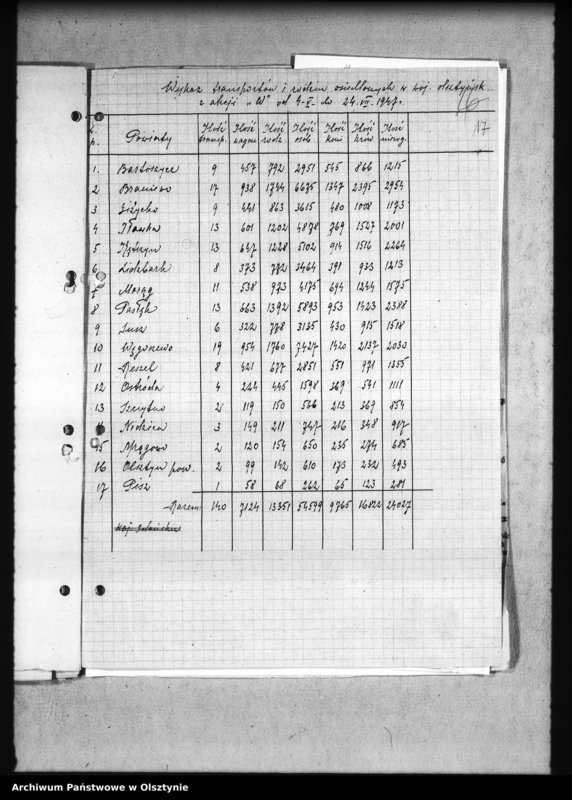 Wykaz transportów i rodzin osiedlonych w woj. olsztyńsk.
z akcji „W" od 4-V- do 24.VII.1947r.
16
17
L.p. Powiaty Ilość transp. Ilość wagon. Ilość rodz. Ilość osób Ilość koni Ilość krów Ilość nierog.
1. Bartoszyce 9 457 792 2951 545 866 1215
2. Braniewo 17 938 1744 6675 1347 2395 2954
3 Giżycko 9 441 863 3615 480 1008 1173
4 Iława 13 601 1202 4878 769 1527 2001
5 Kętrzyn 13 647 1228 5102 914 1516 2264
6 Lidzbark 8 373 772 3464 391 933 1213
7 Morąg 11 538 973 4175 694 1244 1575
8 Pasłęk 13 663 1392 5893 953 1423 2388
9 Susz 6 322 778 3135 430 915 1518
10 Węgorzewo 19 954 1760 7427 1420 2137 2030
11 Reszel 8 421 677 2851 551 971 1355
12 Ostróda 4 224 445 1598 369 541 1111
13 Szczytno 2 119 150 566 213 369 854
14 Nidzica 3 149 211 747 216 348 917
15 Mrągowo 2 120 154 650 235 274 685
16 Olsztyn pow. 2 99 142 610 173 232 493
17 Pisz 1 58 68 262 65 123 281
Razem: 140 7124 13351 54599 9765 16822 24027
Archiwum Państwowe w Olsztynie